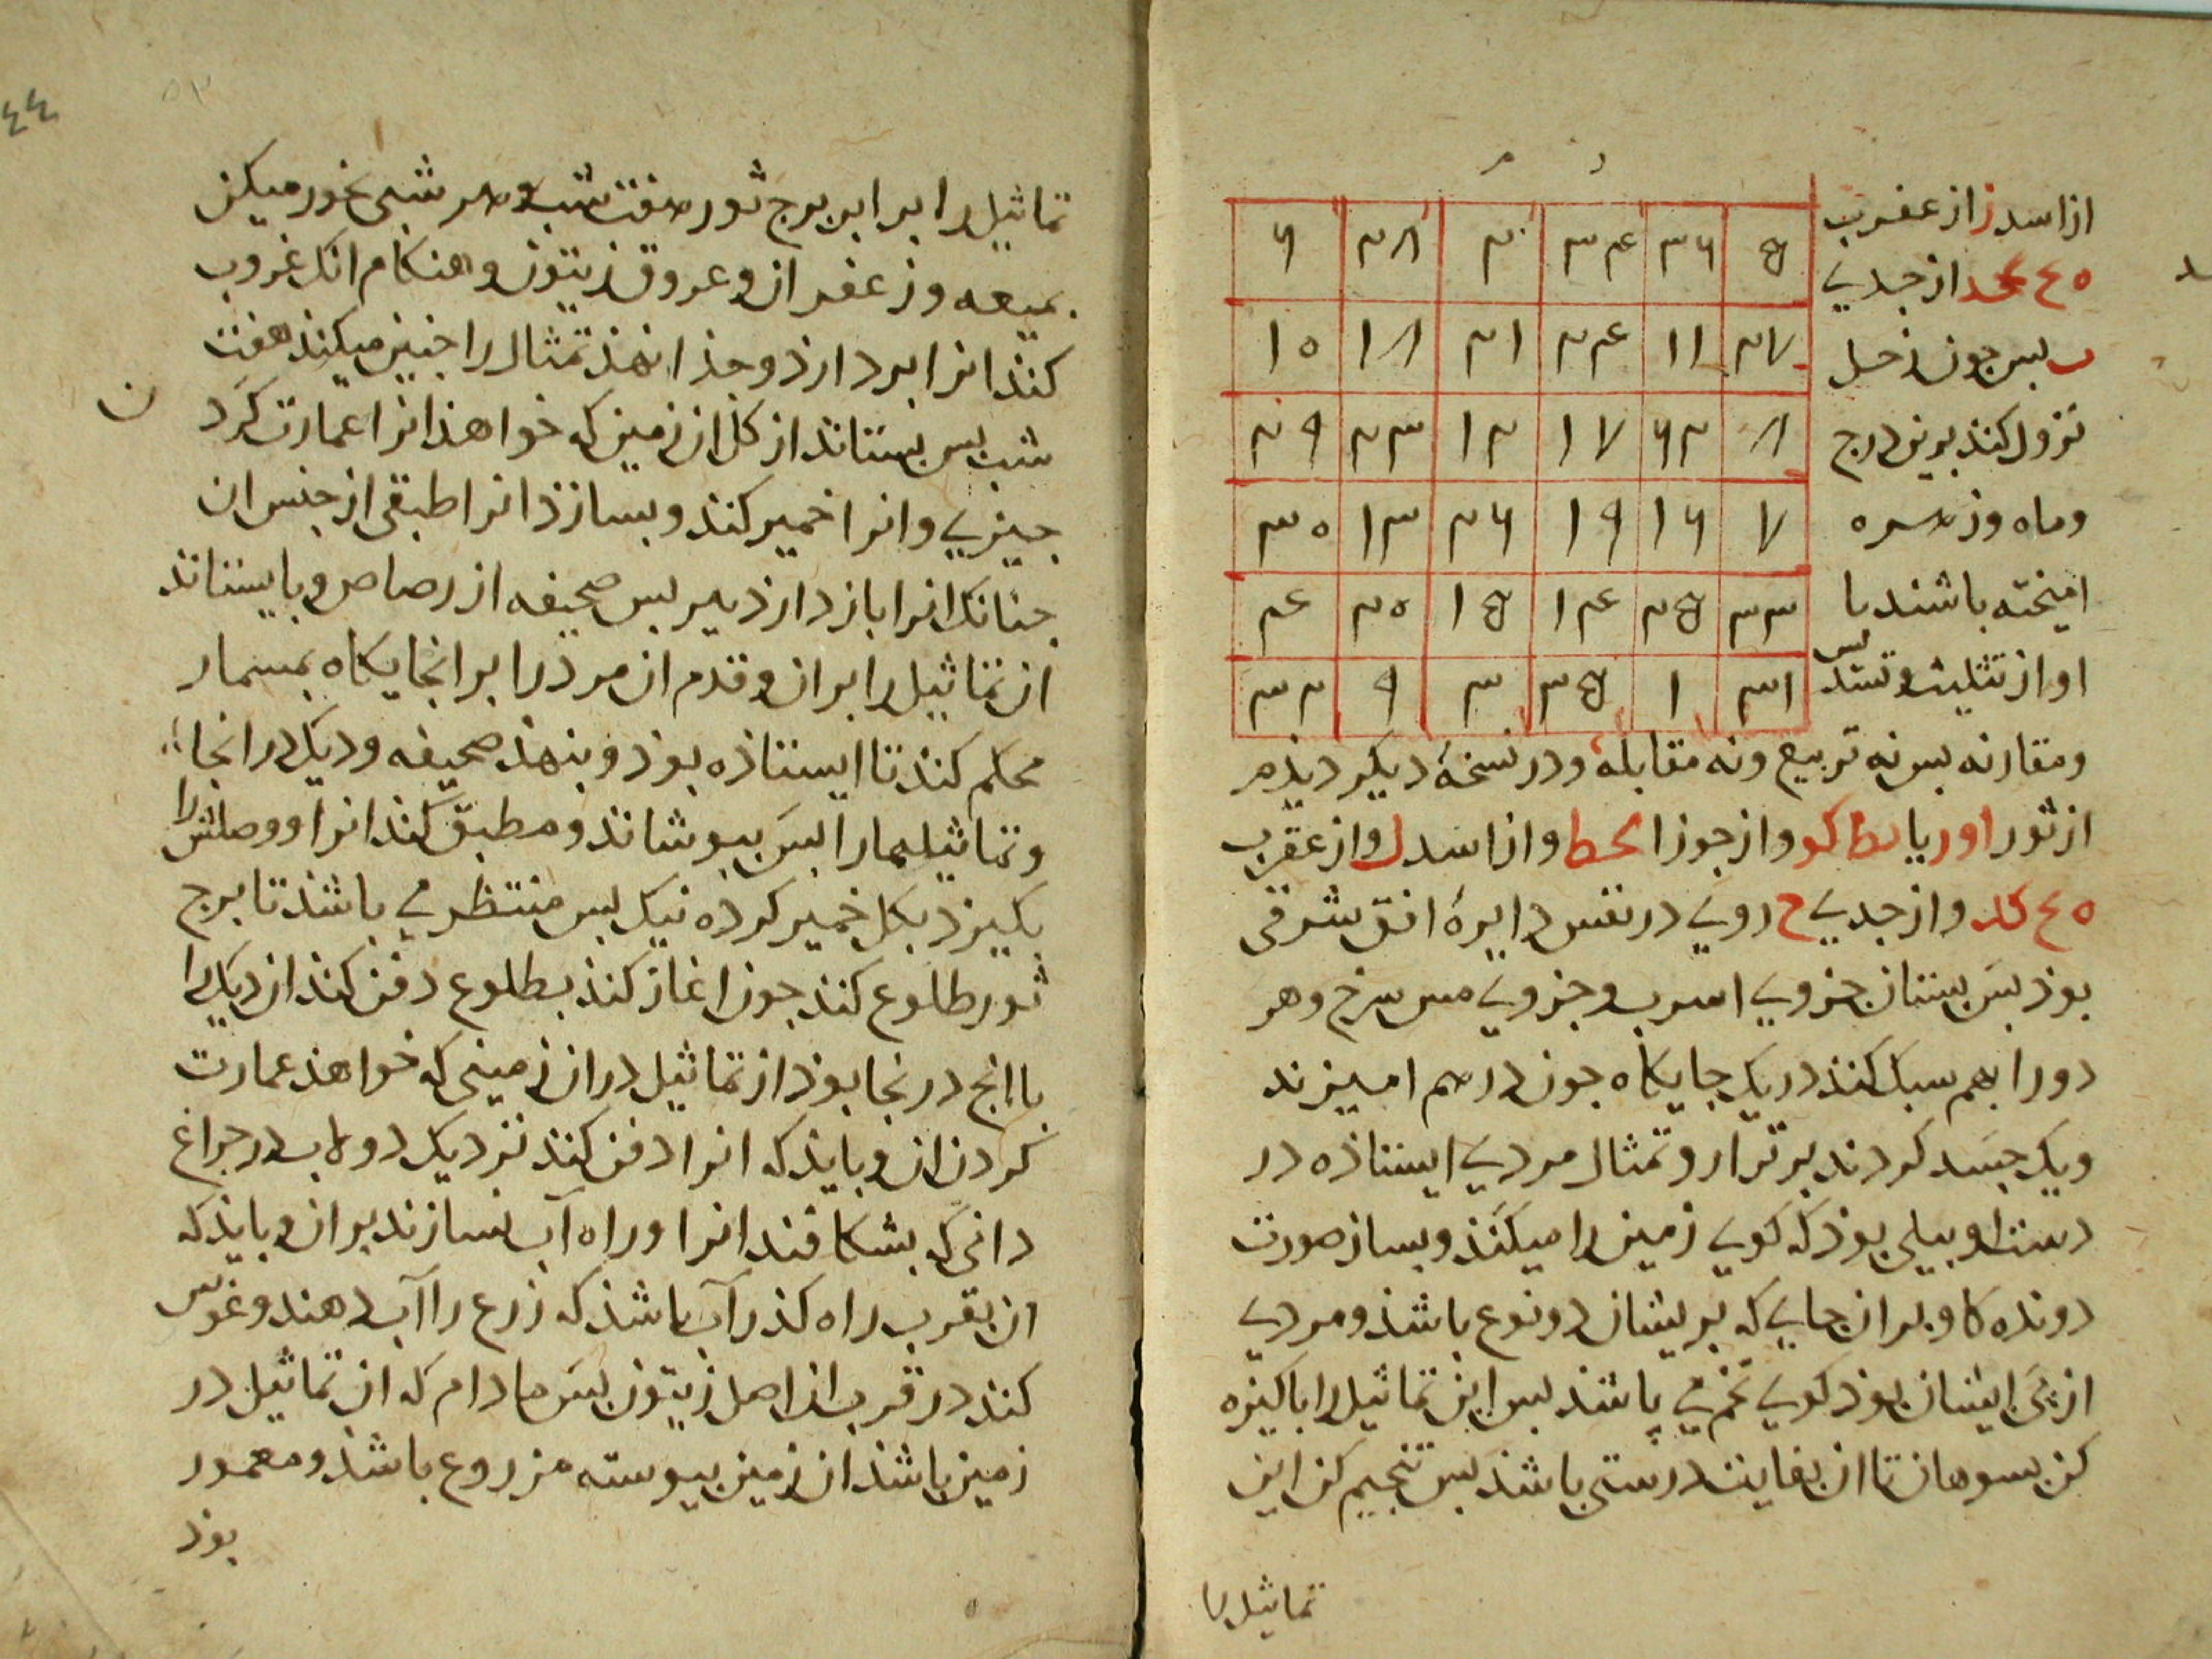 از اسد ز از عقرب
از جدی
بس جون زحل
نزول کند برین درج
وماه وزهره
امیخته باشند با
او از تثلیث وتسدیس
۵ ۳۶ ۳۴ ۲۰ ۲۸ ۶
۲۷ ۱۱ ۲۴ ۲۱ ۱۸ ۱۰
۸ ۲۲ ۱۷ ۱۲ ۲۳ ۲۹
۷ ۱۶ ۱۹ ۲۶ ۱۳ ۳۰
۳۳ ۲۵ ۱۴ ۱۵ ۲۰ ۴
۳۱ ۱ ۳۵ ۳ ۹ ۳۲
ومقارنه بس نه تربیع ونه مقابله ودر نسخهٔ دیکر دیذم
از ثور او ریا کو واز جوزا واز اسد ل واز عقرب
کد واز جدی ح روی در نفس دایرهٔ افق شرقی
بوذ بس بستان جزوی اسرب وجزوی مس سرخ وهر
دو را بهم سبک کنند در یک جایکاه جون درهم امیزند
ویک جسد کردند برتر ار وتمثال مردی ایستاذه در
دست او بیلی بوذ که کویی زمین را میکند وبساز صورت
دونده کاو بران جای که بریشان دو نوع باشذ ومردی
از پی ایشان بوذ کویی تخم می پاشد بس این تماثیل را باکیزه
کن بسوهان تا ان بغایت درستی باشذ بس تنجیم کن این
تماثیل را
۴۴
تماثیل را برابر برج ثور هفت شب وهر شبی بخور میکن
بمیعه وزعفران وعروق زیتون وهنکام انک غروب
کند انرا بردارذ وجذا نهذ تمثال را جنین میکند هفت
شب بس بستاند از کل ان زمین که خواهذ انرا عمارت کرد
جیزی وانرا خمیر کند وبسازذ انرا طبقی از جنس ان
جنانک انرا باز دارذ بس صحیفه از رصاص وبایستاند
ان تماثیل را بران وقدم ان مرد را برانجایکاه بمسمار
محکم کند تا ایستاذه بوذ وبنهذ صحیفه ودیک در انجا
وتماثیلها را بس ببوشاند ومطبق کند انرا ووصلش را
بکیرد بکل خمیر کرده نیک بس منتظر می باشذ تا برج
ثور طلوع کند جون اغاز کند بطلوع دفن کند ان دیک را
با انج درنجا بوذ از تماثیل در ان زمینی که خواهذ عمارت
کردن ان وبایذ که انرا دفن کند نزدیک دولاب در جراغ
دانی که بشکافند انرا وراه آب سازند بران وبایذ که
ان بقرب راه کذر آب باشذ که زرع را آب دهند وغوس
کند در قرب ان اصل زیتون بس مادام که ان تماثیل در
زمین باشذ ان زمین بیوسته مزروع باشذ ومعمور
بوذ